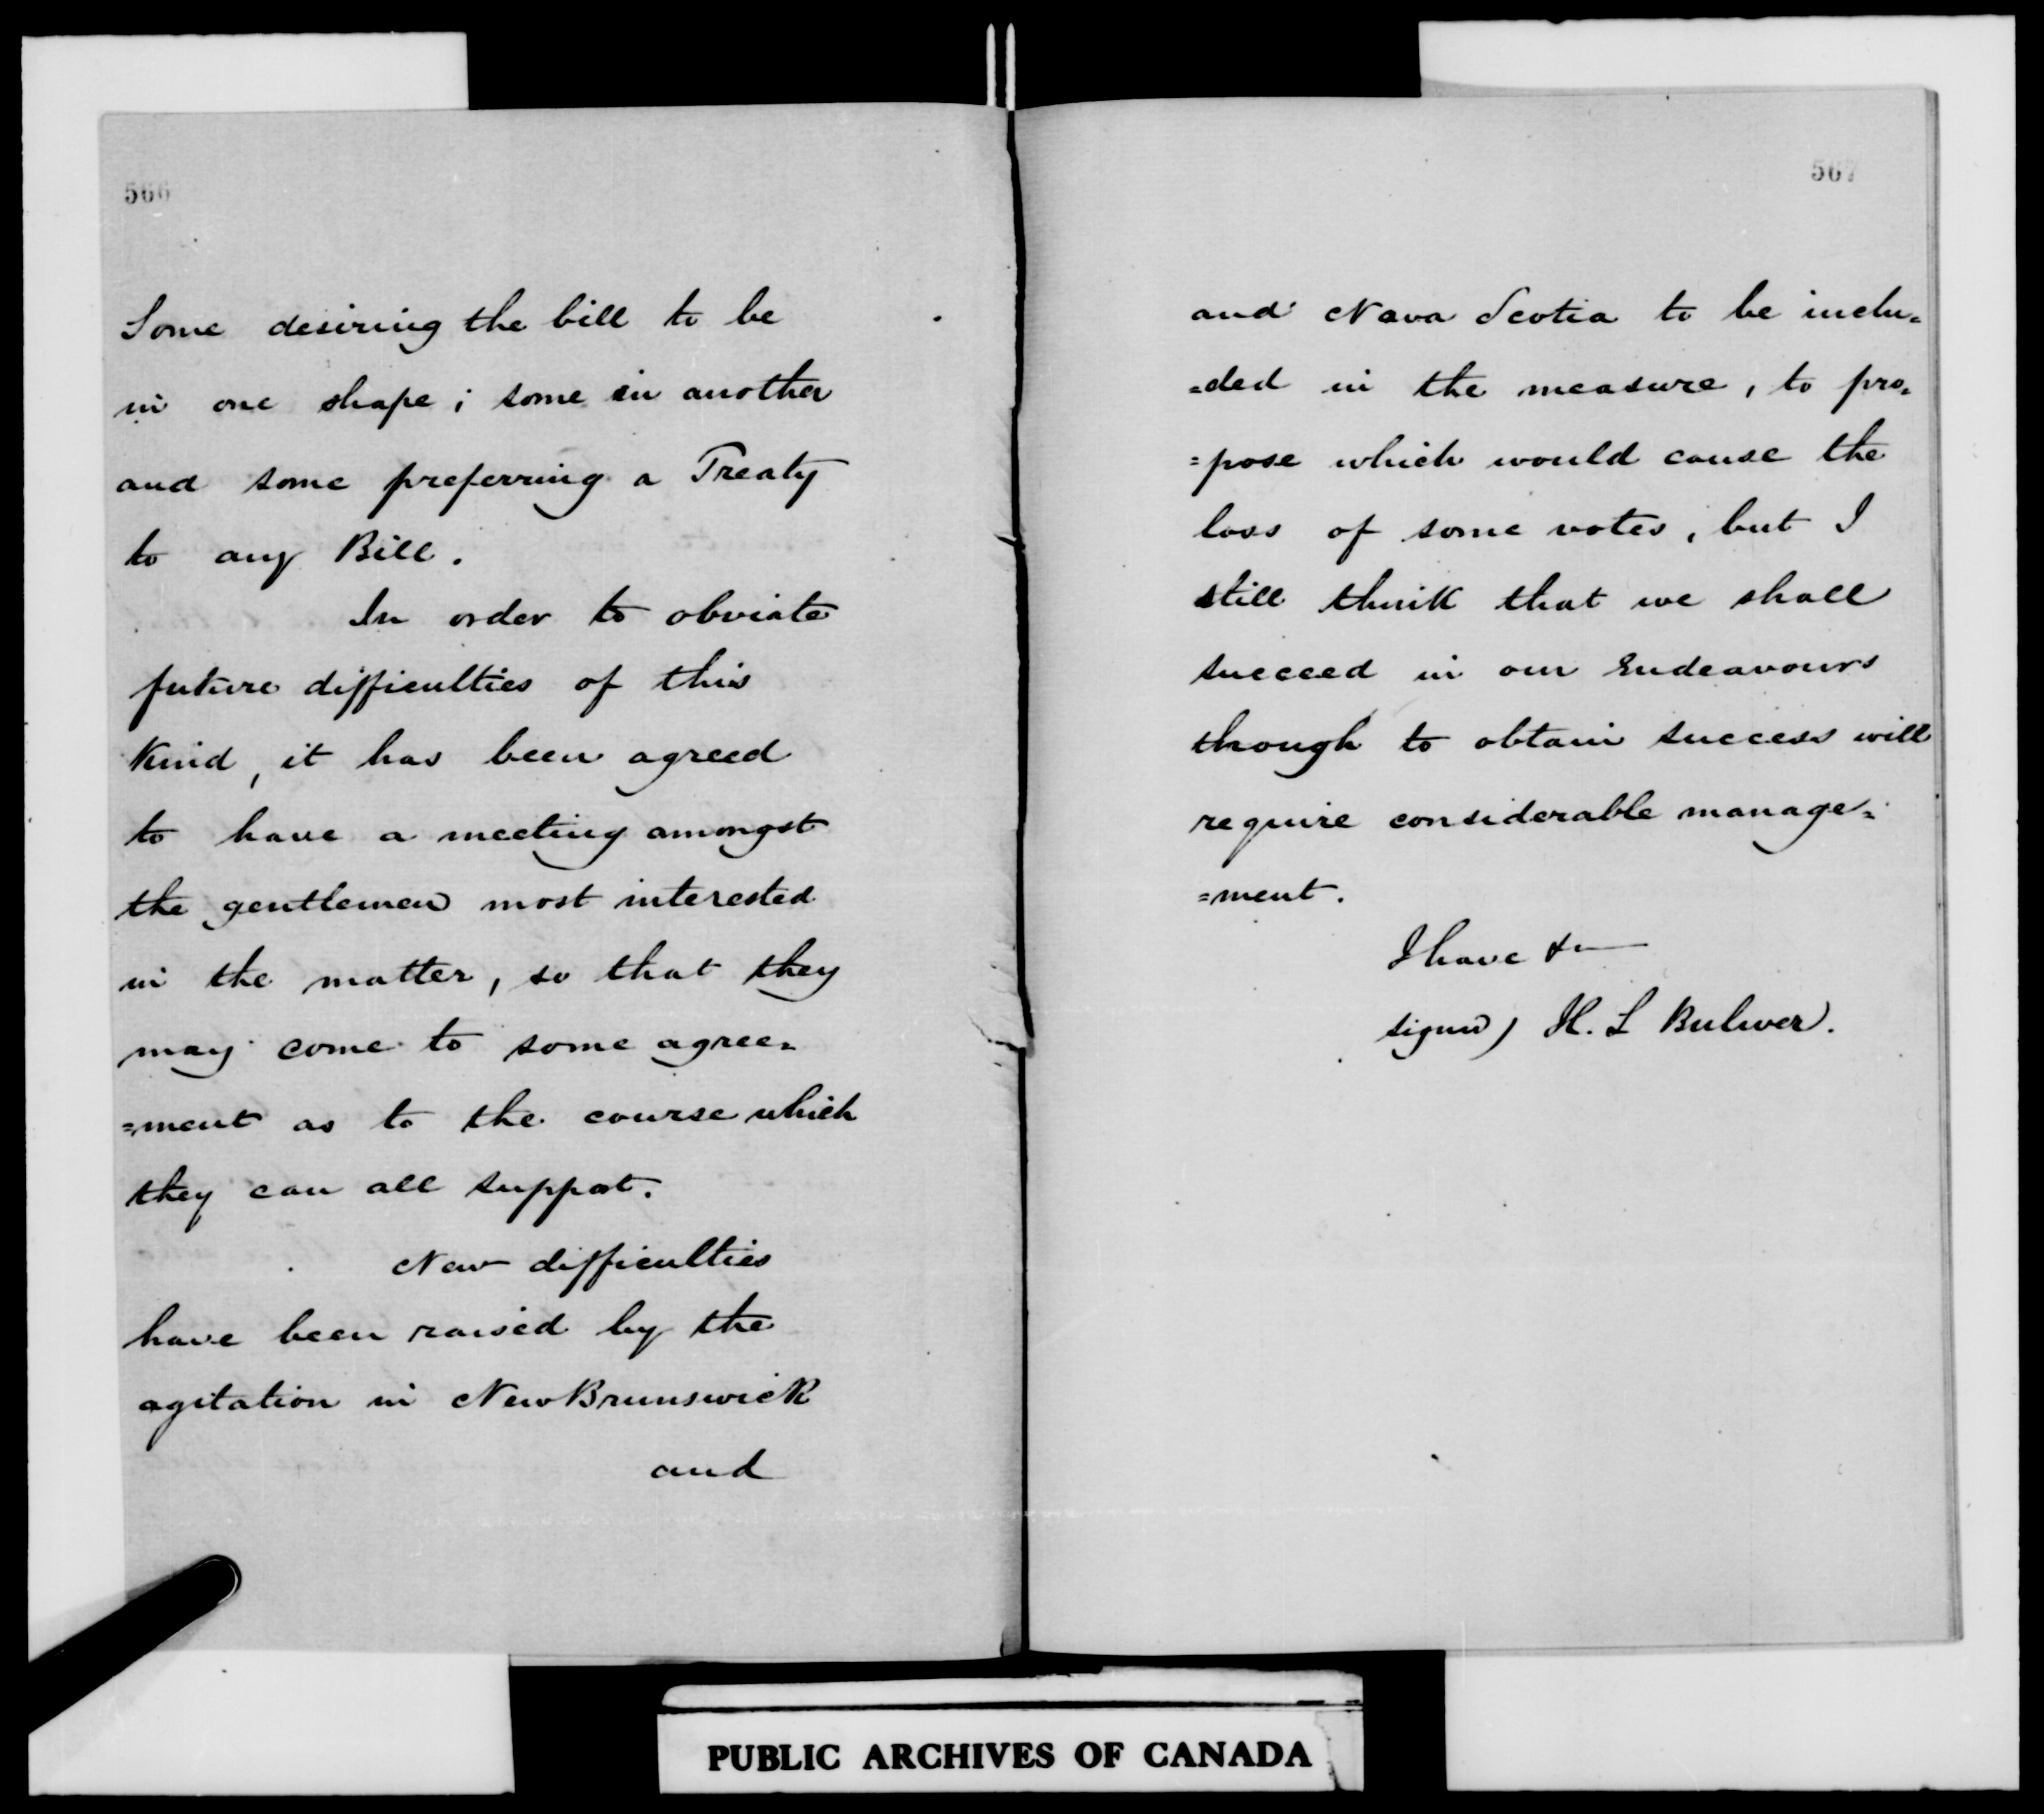 566
Some desiring the bill to be
in one shape; some in another
and some preferring a Treaty
to any Bill.
In order to obviate
future difficulties of this
Kind, it has been agreed
to have a meeting amongst
the gentlemen most interested
in the matter, so that they
may come to some agree=
=ment as to the course which
they can all support.
New difficulties
have been raised by the
agitation in New Brunswick
and
567
and Nova Scotia to be inclu=
=ded in the measure, to pro=
=pose which would cause the
loss of some votes, but I
still think that we shall
succeed in our Endeavours
though to obtain success will
require considerable manage=
=ment.
I have &c
signed) H. L Bulwer.
PUBLIC ARCHIVES OF CANADA